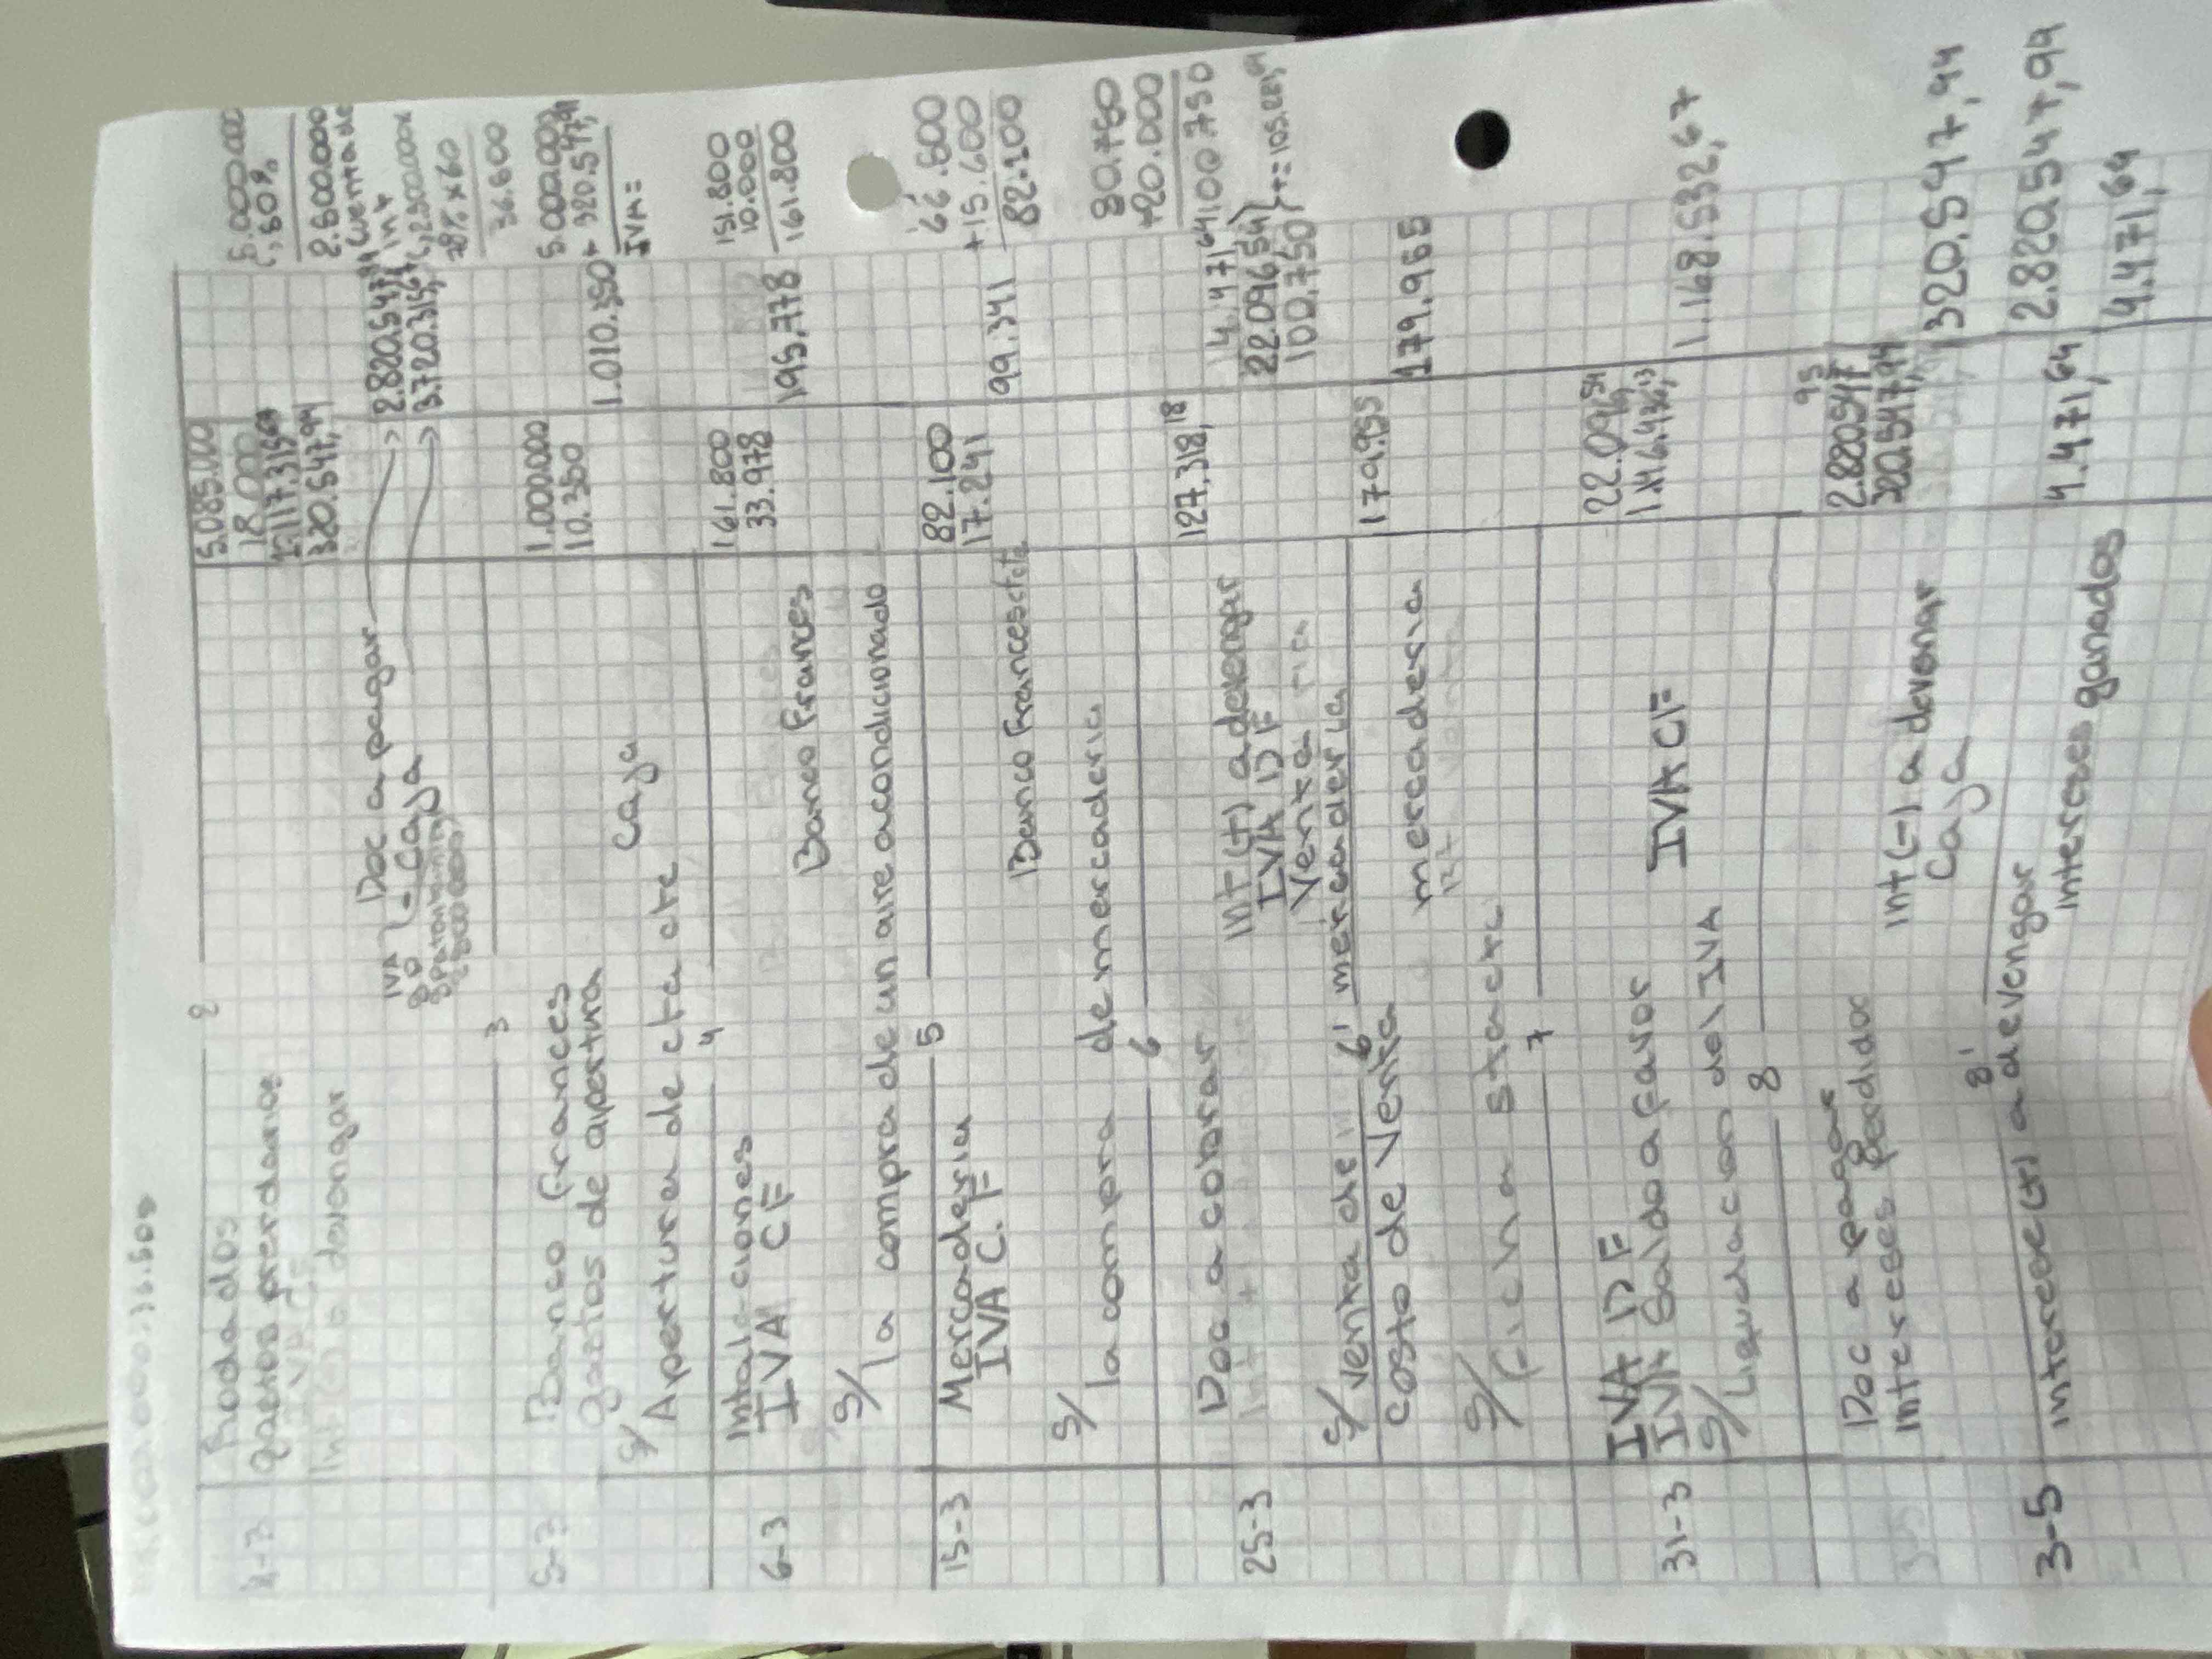 2
2-3 Rodados 5.085.000
gastos prendarios 18.000
IVA CF 1.117.315,67
Int (-) a devengar 320.547,94
Doc a pagar 2.820.547,94
Caja 3.720.315,67
IVA
3
5-3 Banco Frances 1.000.000
gastos de apertura 10.350
Caja 1.010.350
S/ Apertura de cta cte
4
6-3 Intalaciones 161.800
IVA CF 33.978
Banco Frances 195.778
S/ la compra de un aire acondicionado
5
15-3 Mercaderia 82.100
IVA C.F 17.241
Banco Frances cta cte 99.341
S/ la compra de mercaderia
6
25-3 Doc a cobrar 127.318,18
Int (+) a devengar 4.471,64
IVA DF 22.096,54
Venta 100.750
S/ venta de mercaderia
6'
Costo de Venta 179.955
mercaderia 179.955
S/ ficha stock
7
31-3 IVA DF 22.096,54
IVA Saldo a favor 1.146.436,13
IVA CF 1.168.532,67
S/ Liquidacion del IVA
8
Doc a pagar 2.820.547,95
Intereses perdidos 320.547,94
Int (-) a devengar 320.547,94
Caja 2.820.547,94
8'
3-5 intereses (+) a devengar 4.471,64
intereses ganados 4.471,64
5.000.000
50%
2.500.000
36.600
5.000.000
+ 320.547,94
IVA =
151.800
10.000
161.800
66.500
+15.600
82.100
80.750
+20.000
100.750